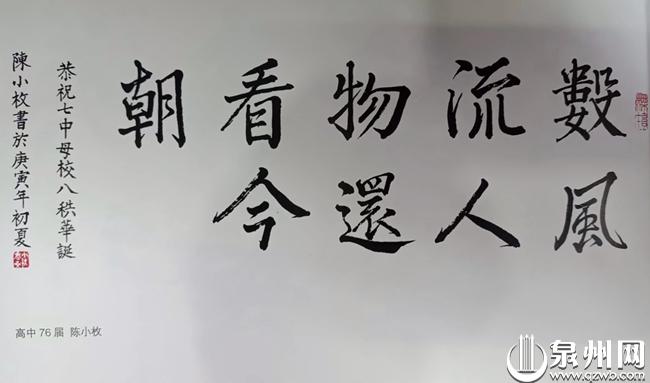 數風
流人
物還
看今
朝
恭祝七中母校八秩華誕
陳小枚書於庚寅年初夏
高中 76 届 陈小枚
泉州网
www.qzwb.com